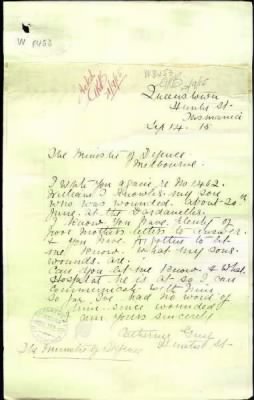 W 8453
Queenstown
Hunter St.
Tasmania
Sep 14. 15
The Minister of Defence
Melbourne.
I wrote you again, re No 1462.
William J. Knowles, my son
who was wounded about 20th
June, at the Dardanelles.
I know you have plenty of
poor mothers letters to answer
& you have forgotten to let
me know what my sons
wounds are.
Can you let me know & what
Hospital he is at so I can
Communicate with him
So far I've had no word of
him since wounded
I am yours sincerely
Catherine
Hunter St.
The Minister of Defence